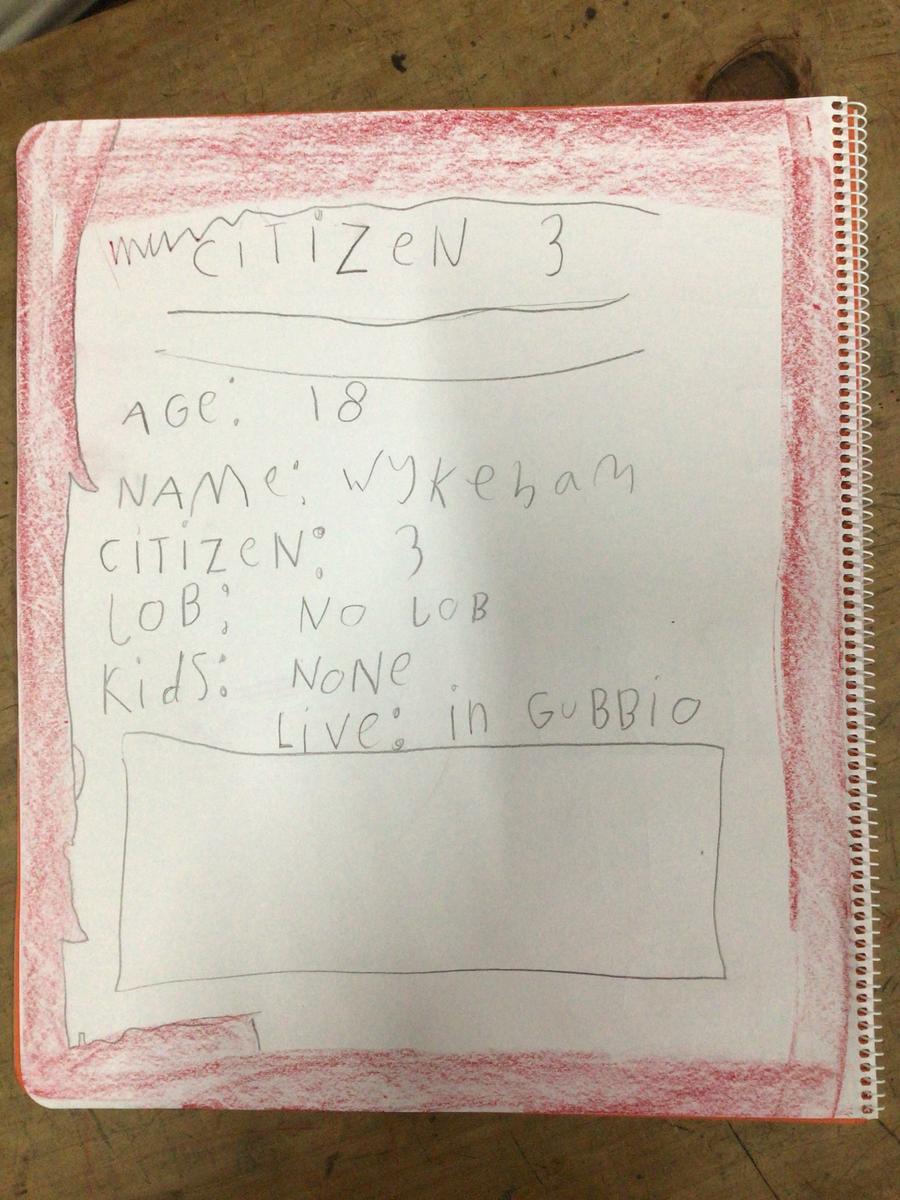 CiTiZeN 3
AGe: 18
NAMe: WyKeham
CiTiZeN: 3
LOB: NO LOB
KidS: NoNe
Live: in GuBBiO